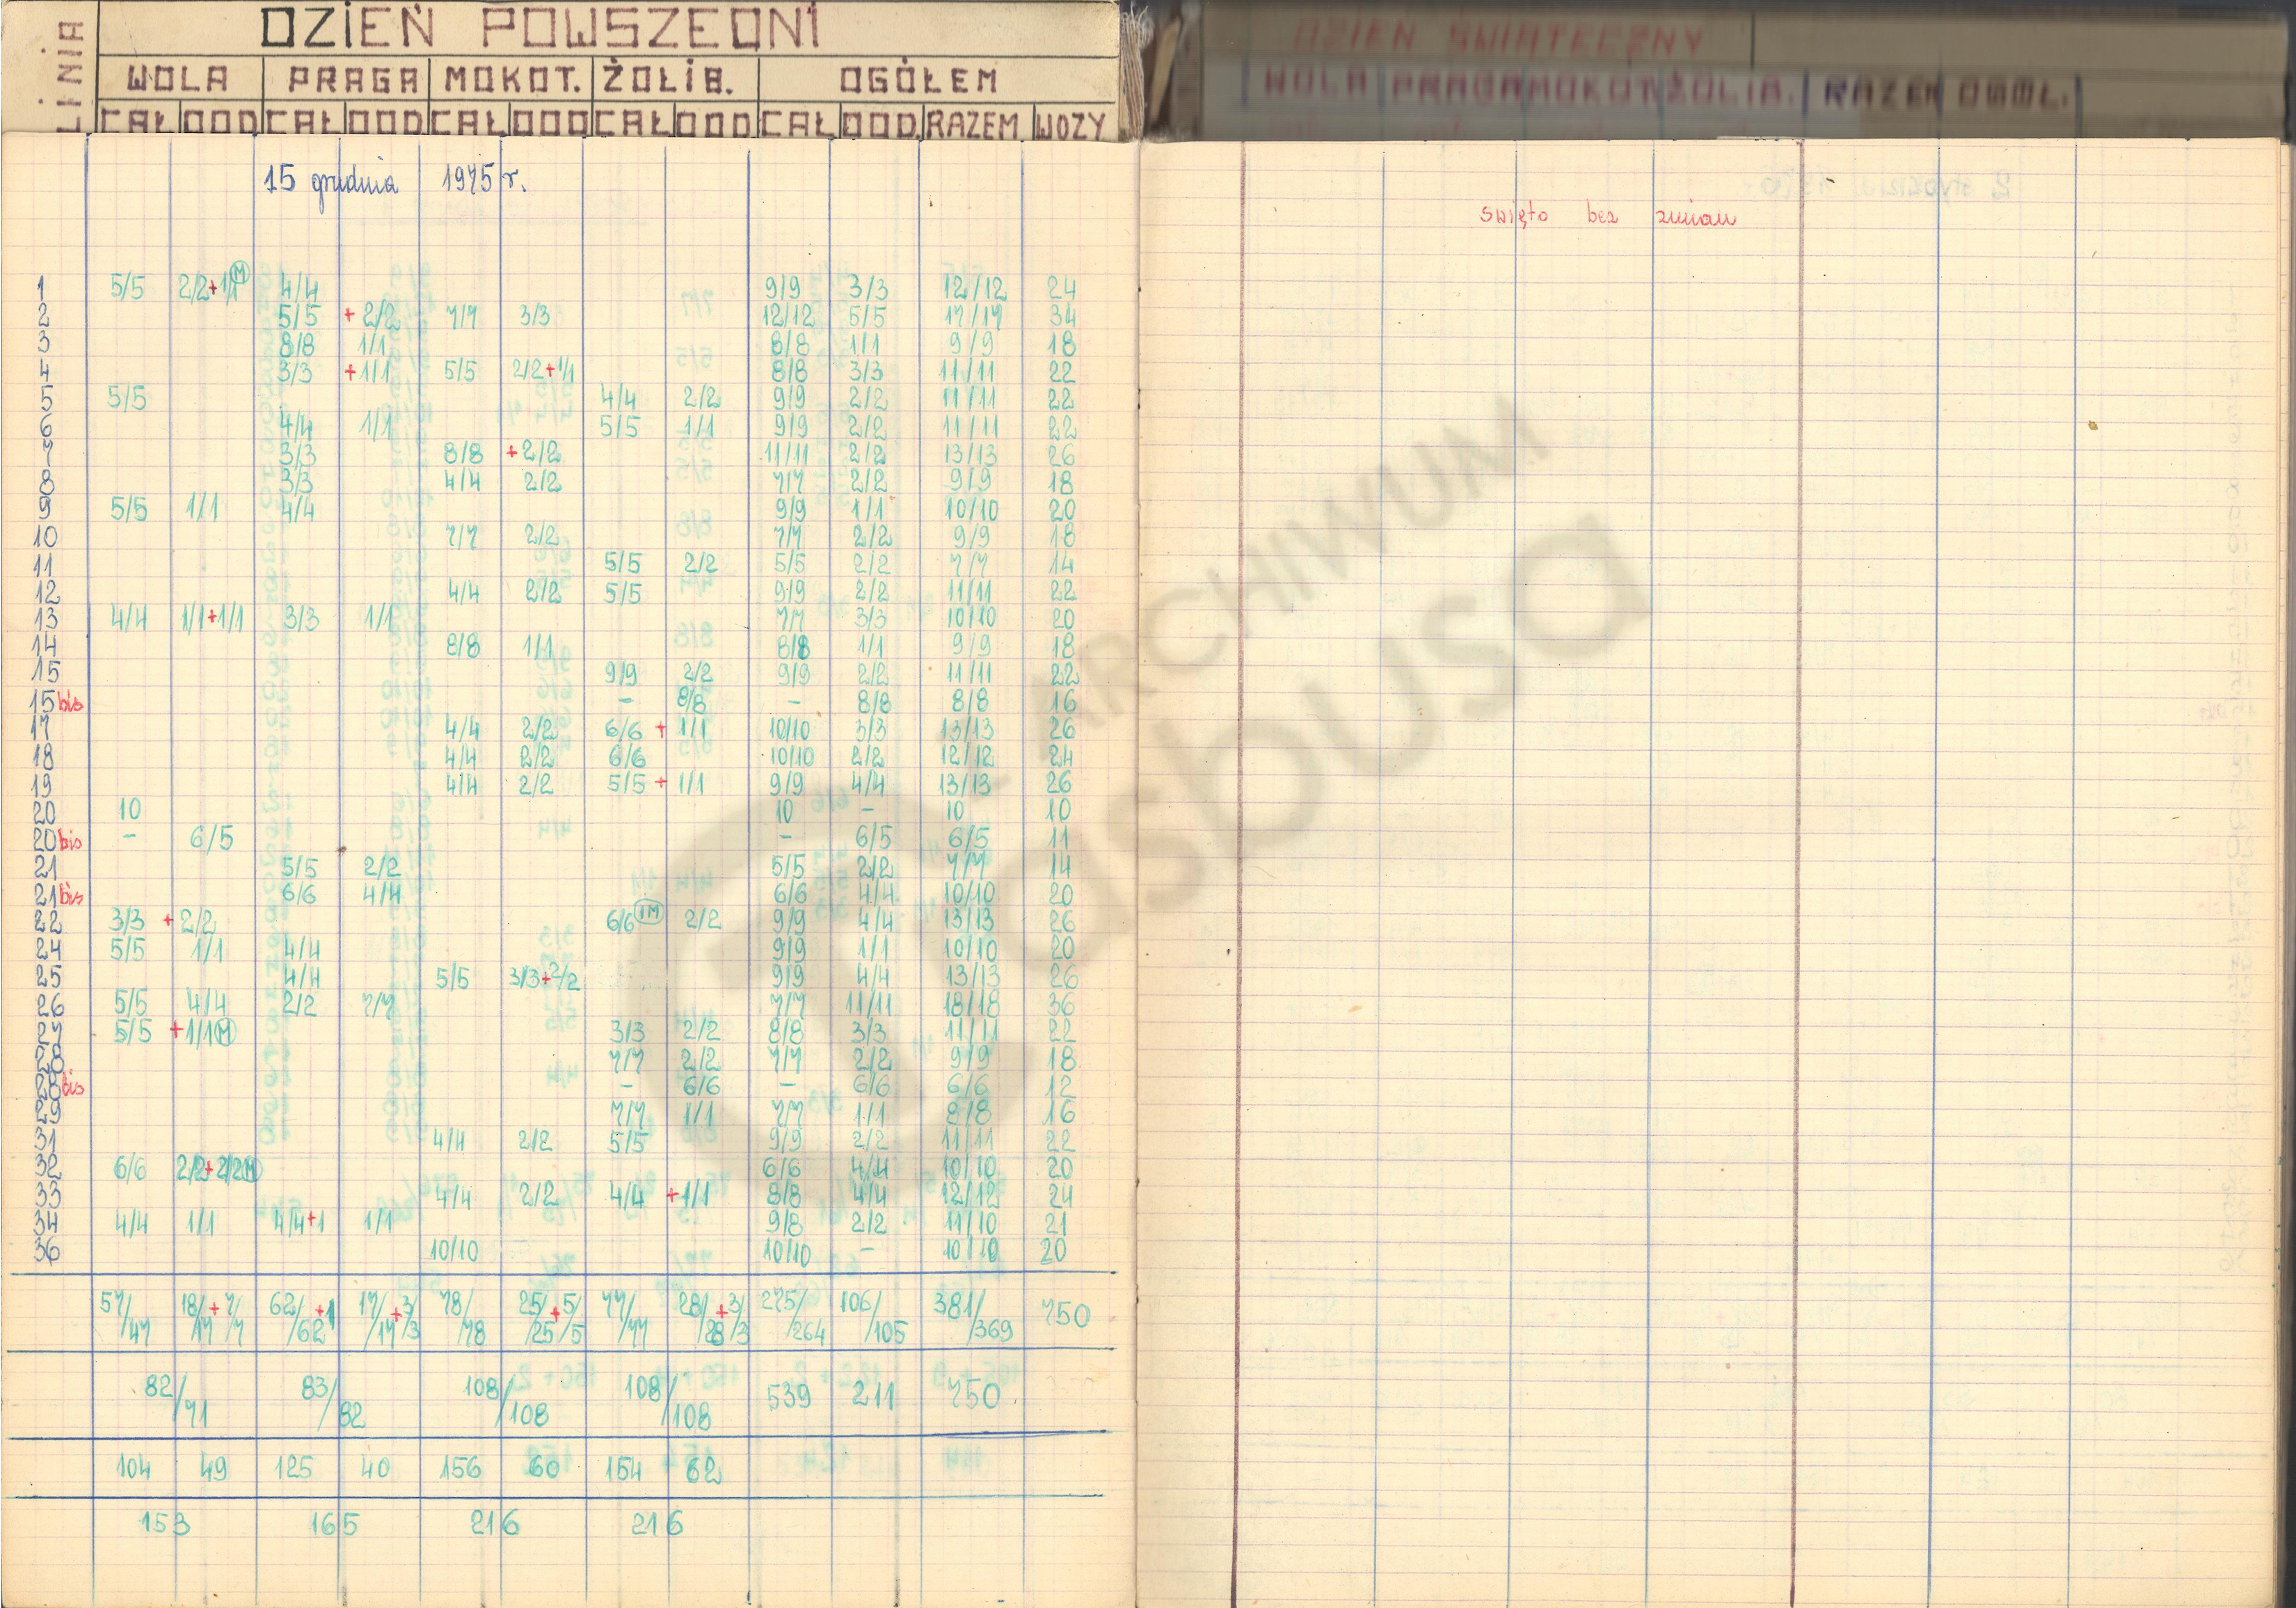 LINIA DZIEŃ POWSZEDNI
WOLA PRAGA MOKOT. ŻOLIB. OGÓŁEM
CAŁ ODD CAŁ ODD CAŁ ODD CAŁ ODD CAŁ ODD. RAZEM WOZY
DZIEŃ ŚWIĄTECZNY
WOLA PRAGA MOKOT ŻOLIB. RAZEM OGÓŁ.
15 grudnia 1975 r.
święto bez zmian
1 5/5 2/2+1/1 M 4/4 9/9 3/3 12/12 24
2 5/5 +2/2 7/7 3/3 12/12 5/5 17/17 34
3 8/8 1/1 8/8 1/1 9/9 18
4 3/3 +1/1 5/5 2/2+1/1 8/8 3/3 11/11 22
5 5/5 4/4 2/2 9/9 2/2 11/11 22
6 4/4 1/1 5/5 1/1 9/9 2/2 11/11 22
7 3/3 8/8 +2/2 11/11 2/2 13/13 26
8 3/3 4/4 2/2 7/7 2/2 9/9 18
9 5/5 1/1 4/4 9/9 1/1 10/10 20
10 7/7 2/2 7/7 2/2 9/9 18
11 5/5 2/2 5/5 2/2 7/7 14
12 4/4 2/2 5/5 9/9 2/2 11/11 22
13 4/4 1/1+1/1 3/3 1/1 7/7 3/3 10/10 20
14 8/8 1/1 8/8 1/1 9/9 18
15 9/9 2/2 9/9 2/2 11/11 22
15 bis – 8/8 – 8/8 8/8 16
17 4/4 2/2 6/6 + 1/1 10/10 3/3 13/13 26
18 4/4 2/2 6/6 10/10 2/2 12/12 24
19 4/4 2/2 5/5 + 1/1 9/9 4/4 13/13 26
20 10 10 – 10 10
20 bis – 6/5 – 6/5 6/5 11
21 5/5 2/2 5/5 2/2 7/7 14
21 bis 6/6 4/4 6/6 4/4 10/10 20
22 3/3 + 2/2 6/6 1M 2/2 9/9 4/4 13/13 26
24 5/5 1/1 4/4 9/9 1/1 10/10 20
25 4/4 5/5 3/3+2/2 9/9 4/4 13/13 26
26 5/5 4/4 2/2 7/7 7/7 11/11 18/18 36
27 5/5 +1/1 M 3/3 2/2 8/8 3/3 11/11 22
28 7/7 2/2 7/7 2/2 9/9 18
28 bis – 6/6 – 6/6 6/6 12
29 7/7 1/1 7/7 1/1 8/8 16
31 4/4 2/2 5/5 9/9 2/2 11/11 22
32 6/6 2/2+2/2 M 6/6 4/4 10/10 20
33 4/4 2/2 4/4 +1/1 8/8 4/4 12/12 24
34 4/4 1/1 4/4+1 1/1 9/8 2/2 11/10 21
36 10/10 10/10 – 10/10 20
57/47 18/17+7/7 62/62+1 17/17+3/3 78/78 25/25+5/5 77/77 28/28+3/3 275/264 106/105 381/369 750
82/71 83/82 108/108 108/108 539 211 750
104 49 125 40 156 60 154 62
153 165 216 216
ARCHIWUM
Tasbusa